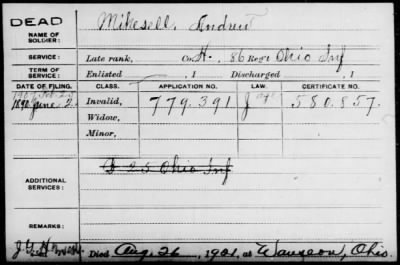 DEAD
NAME OF SOLDIER: Mikesell, Andrew
SERVICE: Late rank, Co. H., 86 Reg't Ohio Inf
TERM OF SERVICE: Enlisted , 1 Discharged , 1
DATE OF FILING. CLASS. APPLICATION NO. LAW. CERTIFICATE NO.
1892 June 2 Invalid, 779.391 580.857.
Widow,
Minor,
ADDITIONAL SERVICES: 25 Ohio Inf
REMARKS:
Died Aug. 26, 1921, at Wauseon, Ohio.